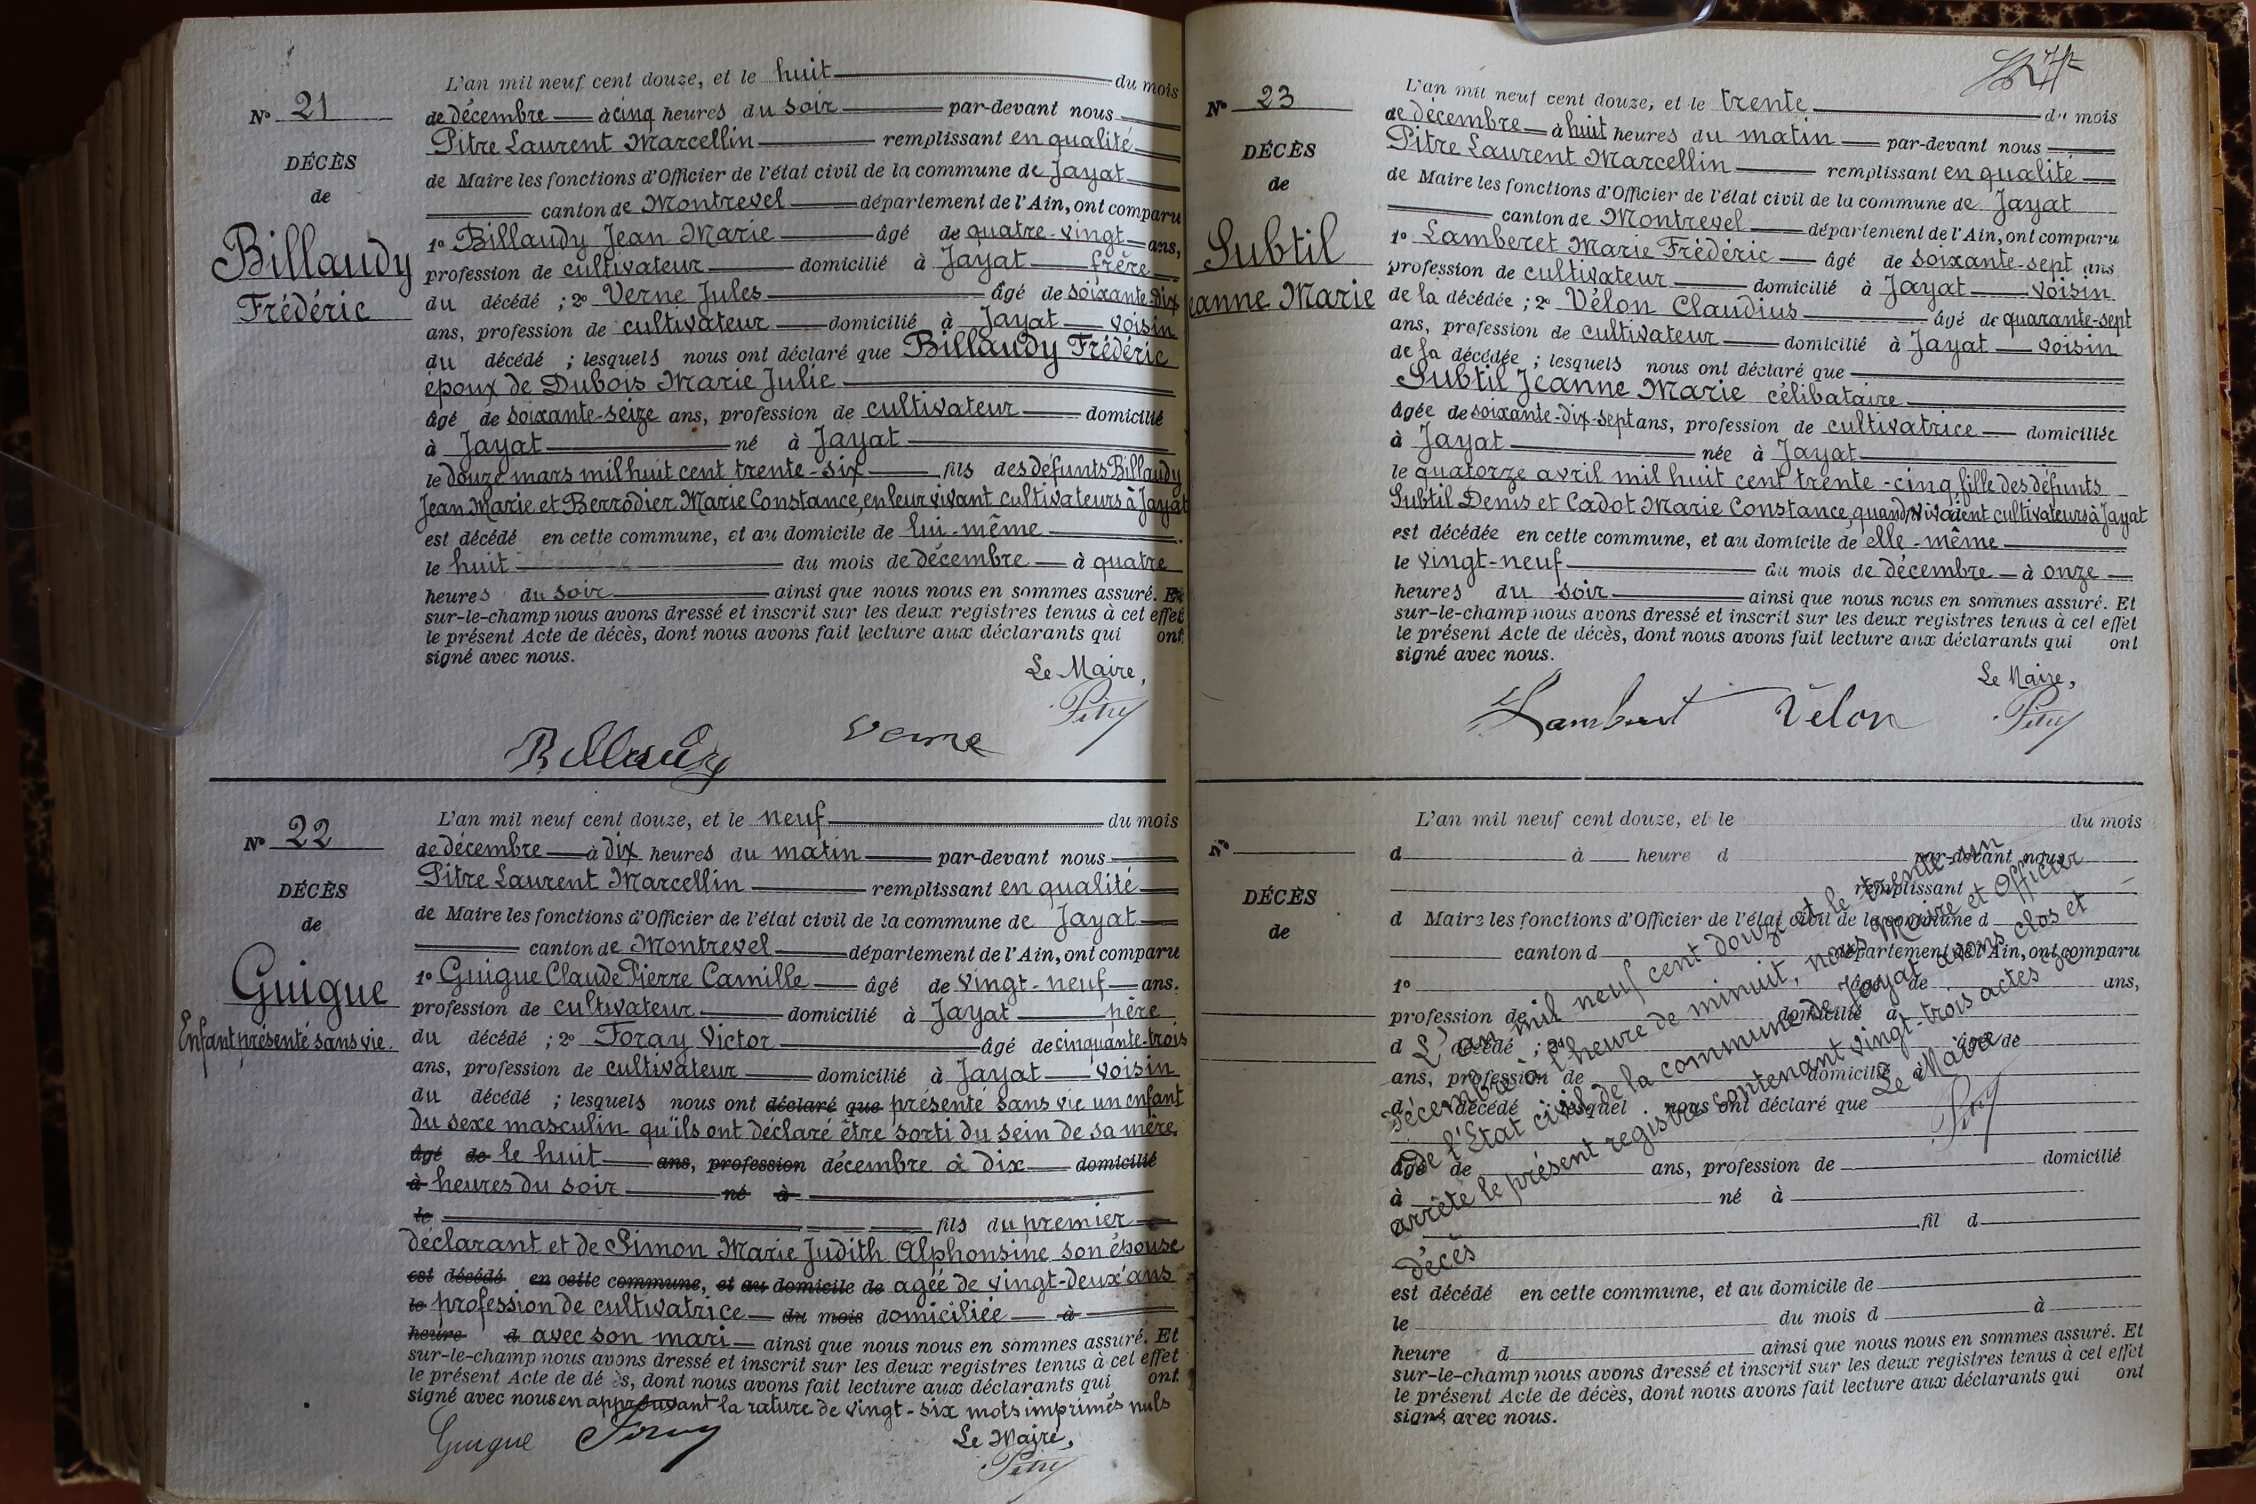 L'an mil neuf cent douze, et le huit du mois
N° 21
de décembre à cinq heures du soir par-devant nous
Pitre Laurent Marcellin remplissant en qualité
DÉCÈS
de Maire les fonctions d'Officier de l'état civil de la commune de Jayat
de
canton de Montrevel département de l'Ain, ont comparu
Billaudy
1° Billaudy Jean Marie âgé de quatre-vingt ans,
profession de cultivateur domicilié à Jayat frère
Frédéric
du décédé ; 2° Verne Jules âgé de soixante-dix
ans, profession de cultivateur domicilié à Jayat voisin
du décédé ; lesquels nous ont déclaré que Billaudy Frédéric
époux de Dubois Marie Julie
âgé de soixante-seize ans, profession de cultivateur domicilié
à Jayat né à Jayat
le douze mars mil huit cent trente-six fils des défunts Billaudy
Jean Marie et Berrodier Marie Constance, en leur vivant cultivateurs à Jayat
est décédé en cette commune, et au domicile de lui-même
le huit du mois de décembre à quatre
heures du soir ainsi que nous nous en sommes assuré. Et
sur-le-champ nous avons dressé et inscrit sur les deux registres tenus à cet effet
le présent Acte de décès, dont nous avons fait lecture aux déclarants qui ont
signé avec nous.
Le Maire,
Pitre
Billaudy Verne
L'an mil neuf cent douze, et le neuf du mois
N° 22
de décembre à dix heures du matin par-devant nous
Pitre Laurent Marcellin remplissant en qualité
DÉCÈS
de Maire les fonctions d'Officier de l'état civil de la commune de Jayat
de
canton de Montrevel département de l'Ain, ont comparu
Guigue
1° Guigue Claude Pierre Camille âgé de vingt-neuf ans.
profession de cultivateur domicilié à Jayat père
Enfant présenté sans vie.
du décédé ; 2° Foray Victor âgé de cinquante-trois
ans, profession de cultivateur domicilié à Jayat voisin
du décédé ; lesquels nous ont déclaré que présenté sans vie un enfant
du sexe masculin qu'ils ont déclaré être sorti du sein de sa mère
âgé de le huit ans, profession décembre à dix domicilié
à heures du soir né à
le fils du premier
déclarant et de Simon Marie Judith Alphonsine son épouse
est décédé en cette commune, et au domicile de agée de vingt-deux ans
le profession de cultivatrice du mois domiciliée à
heure d avec son mari ainsi que nous nous en sommes assuré. Et
sur-le-champ nous avons dressé et inscrit sur les deux registres tenus à cet effet
le présent Acte de décès, dont nous avons fait lecture aux déclarants qui ont
signé avec nous en approuvant la rature de vingt-six mots imprimés nuls
Guigue Foray
Le Maire,
Pitre
L'an mil neuf cent douze, et le trente du mois
N° 23
de décembre à huit heures du matin par-devant nous
Pitre Laurent Marcellin remplissant en qualité
DÉCÈS
de Maire les fonctions d'Officier de l'état civil de la commune de Jayat
de
canton de Montrevel département de l'Ain, ont comparu
Subtil
1° Lamberet Marie Frédéric âgé de soixante-sept ans
profession de cultivateur domicilié à Jayat voisin
eanne Marie
de la décédée ; 2° Vélon Claudius âgé de quarante-sept
ans, profession de cultivateur domicilié à Jayat voisin
de la décédée ; lesquels nous ont déclaré que
Subtil Jeanne Marie célibataire
âgée de soixante-dix-sept ans, profession de cultivatrice domiciliée
à Jayat née à Jayat
le quatorze avril mil huit cent trente-cinq fille des défunts
Subtil Denis et Cadot Marie Constance, quand vivaient cultivateurs à Jayat
est décédée en cette commune, et au domicile de elle-même
le vingt-neuf du mois de décembre à onze
heures du soir ainsi que nous nous en sommes assuré. Et
sur-le-champ nous avons dressé et inscrit sur les deux registres tenus à cet effet
le présent Acte de décès, dont nous avons fait lecture aux déclarants qui ont
signé avec nous.
Le Maire,
Lamberet Vélon Pitre
L'an mil neuf cent douze, et le du mois
N°
d à heure d par-devant nous
remplissant
DÉCÈS
d Maire les fonctions d'Officier de l'état civil de la commune d
de
canton d département de l'Ain, ont comparu
1° âgé de ans,
profession de domicilié à
d décédé ; 2° âgé de
ans, profession de domicilié à
d décédé ; lesquel nous ont déclaré que
âgé de ans, profession de domicilié
à né à
fil d
est décédé en cette commune, et au domicile de
le du mois d à
heure d ainsi que nous nous en sommes assuré. Et
sur-le-champ nous avons dressé et inscrit sur les deux registres tenus à cet effet
le présent Acte de décès, dont nous avons fait lecture aux déclarants qui ont
signé avec nous.
L'an mil neuf cent douze et le trente-un
décembre à l'heure de minuit, nous Maire et Officier
de l'Etat civil de la commune de Jayat avons clos et
arrêté le présent registre contenant vingt-trois actes de
décès
Le Maire
Pitre